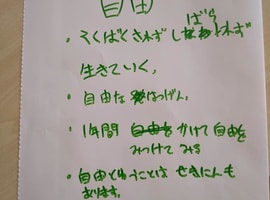 自由
・そくばくされず しばられず
生きていく。
・自由な はつげん。
・1年間 かけて自由を
みつけてみる
・自由ということは せきにんも
あります。